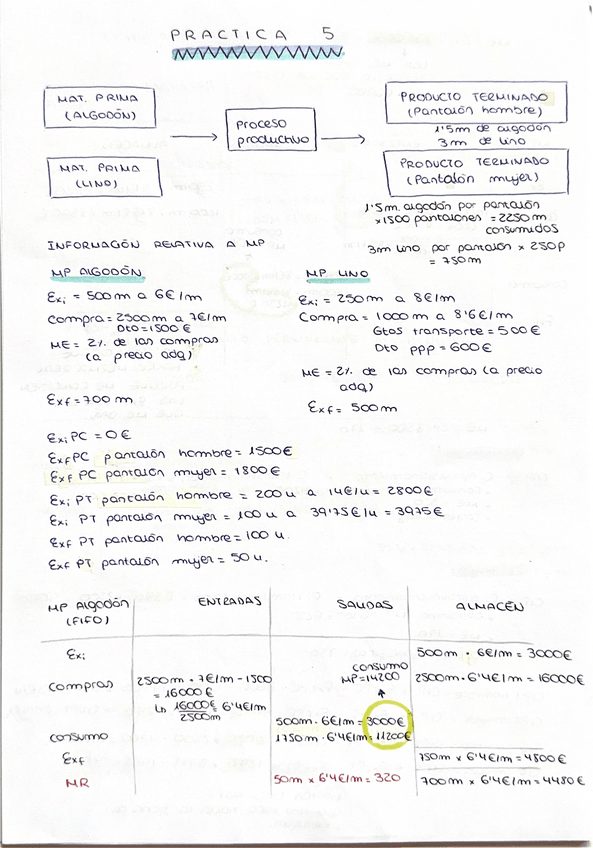 PRACTICA 5
MAT. PRIMA
(ALGODÓN)
MAT. PRIMA
(LINO)
Proceso
productivo
PRODUCTO TERMINADO
(Pantalón hombre)
1'5m de algodón
3m de lino
PRODUCTO TERMINADO
(Pantalón mujer)
1'5m. algodón por pantalón
×1500 pantalones = 2250m
consumidos
3m lino por pantalón × 250p
= 750m
INFORMACIÓN RELATIVA A MP
MP ALGODÓN
Exi = 500m a 6€/m
Compra = 2500m a 7€/m
Dto = 1500€
ME = 2% de las compras
(a precio adq)
Exf = 700m
MP LINO
Exi = 250m a 8€/m
Compra = 1000m a 8'6€/m
Gtos transporte = 500€
Dto ppp = 600€
ME = 2% de las compras (a precio
adq)
Exf = 500m
Exi PC = 0€
Exf PC pantalón hombre = 1500€
Exf PC pantalón mujer = 1800€
Exi PT pantalón hombre = 200u a 14€/u = 2800€
Exi PT pantalón mujer = 100u a 39'75€/u = 3975€
Exf PT pantalón hombre = 100u.
Exf PT pantalón mujer = 50u.
MP Algodón
(FIFO)
ENTRADAS
SALIDAS
ALMACÉN
Exi
500m · 6€/m = 3000€
compras
2500m · 7€/m - 1500
= 16000€
16000€
2500m
= 6'4€/m
consumo
MP = 14200
2500m · 6'4€/m = 16000€
consumo
500m · 6€/m = 3000€
1750m · 6'4€/m = 11200€
Exf
750m × 6'4€/m = 4800€
MR
50m × 6'4€/m = 320
700m × 6'4€/m = 4480€